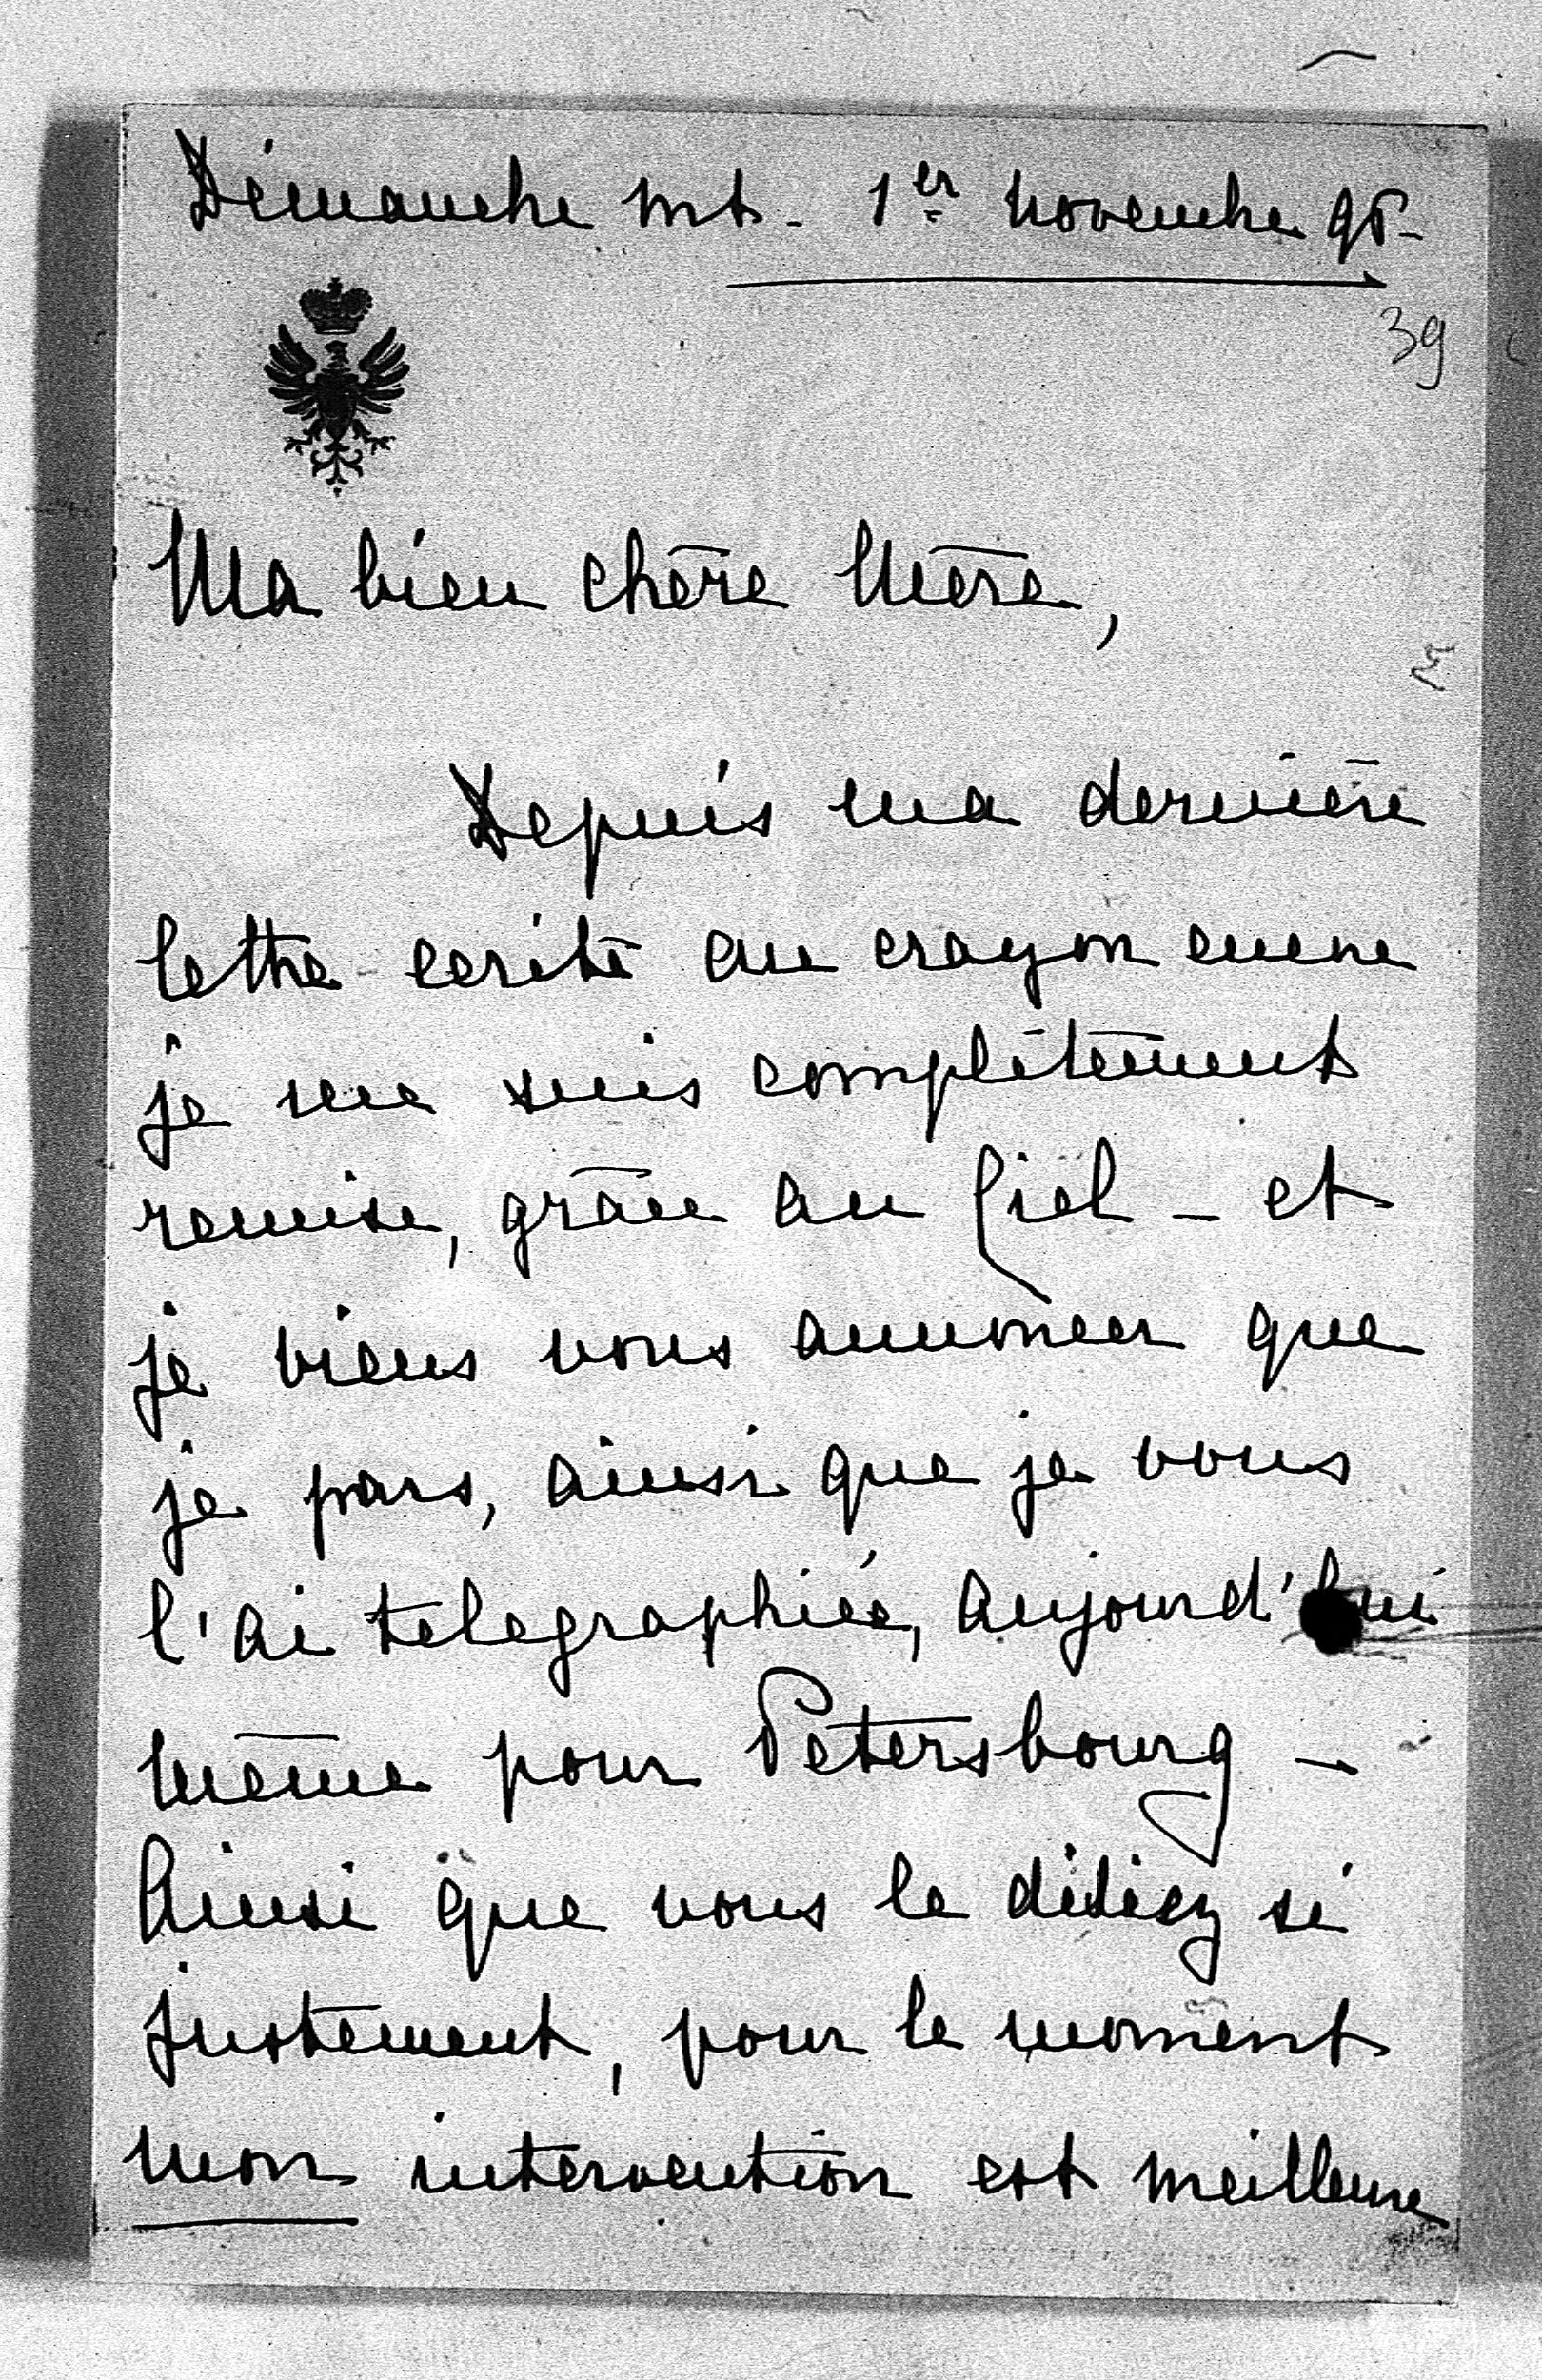 Dimanche mt. 1er novembre
39
Ma bien chère Mère,
Depuis ma dernière
lettre ecrite au crayon encre
je me suis complètement
remise, grâce au Ciel - et
je viens vous annoncer que
je pars, ainsi que je vous
l'ai telegraphiée, aujourd'hui
même pour Petersbourg -
Ainsi que vous le disiez si
justement, pour le moment
mon intervention est meilleure